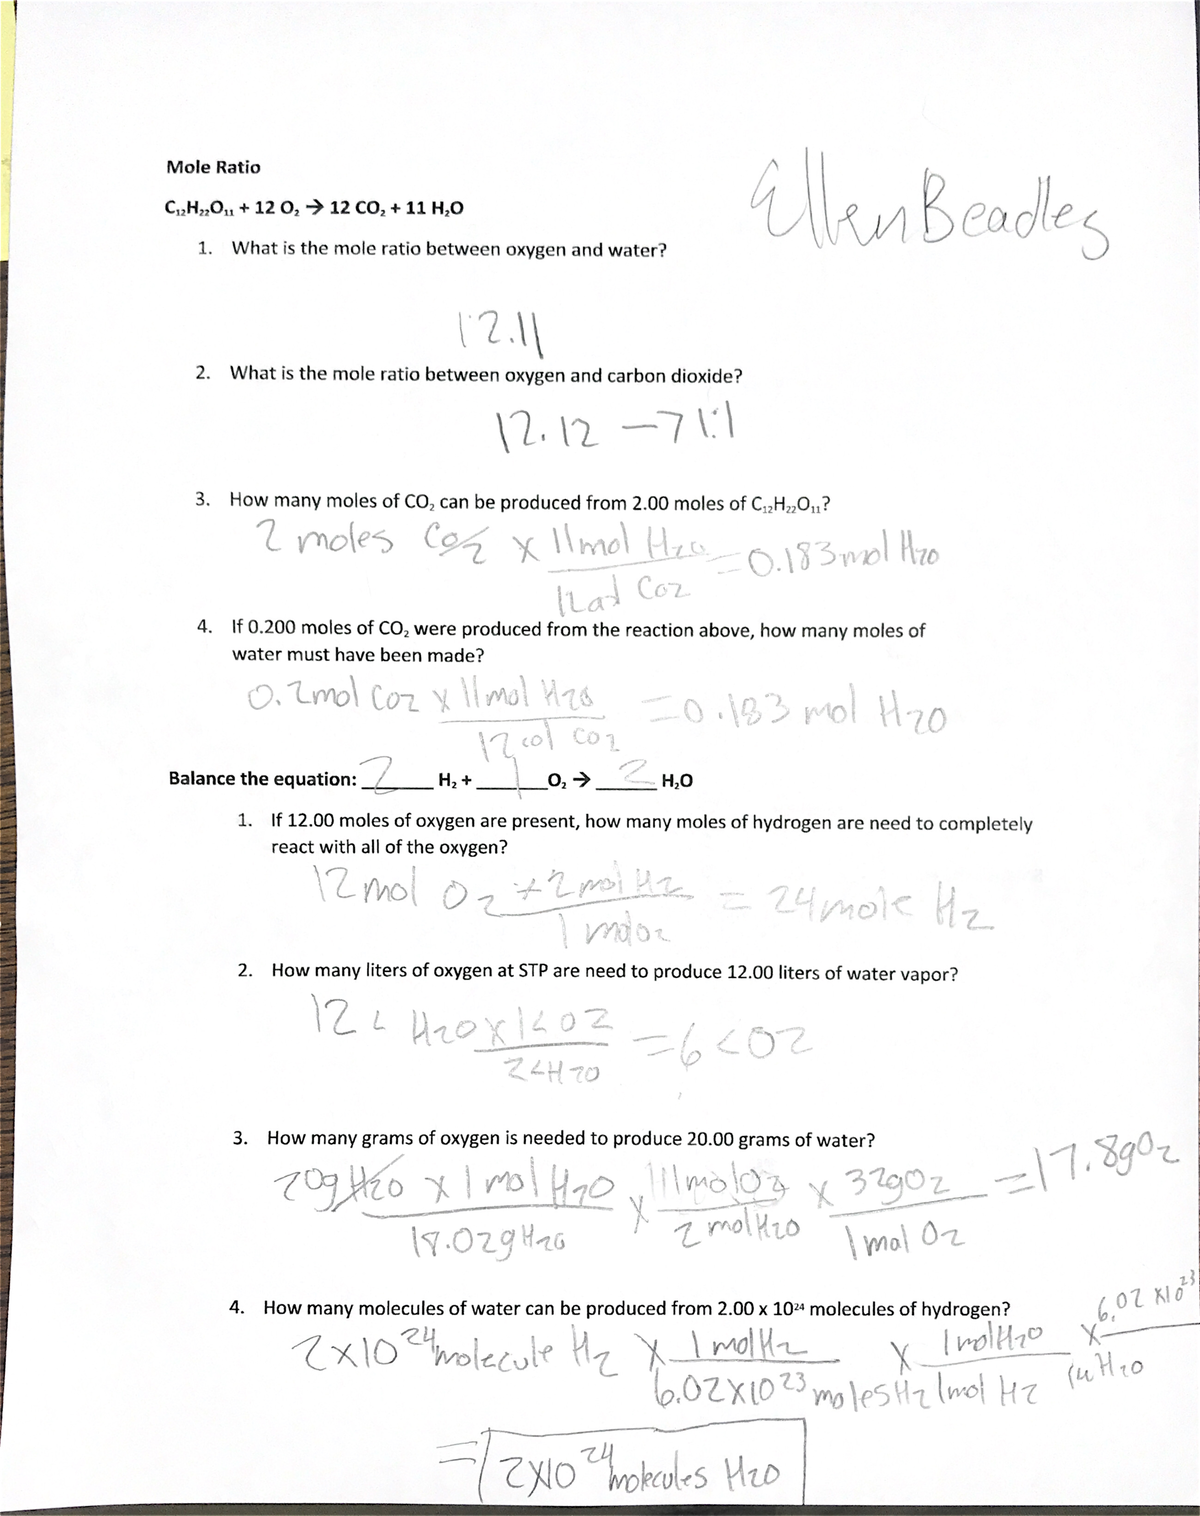 Mole Ratio
Ellen Beadles
C₁₂H₂₂O₁₁ + 12 O₂ → 12 CO₂ + 11 H₂O
1. What is the mole ratio between oxygen and water?
12.11
2. What is the mole ratio between oxygen and carbon dioxide?
12.12 → 1:1
3. How many moles of CO₂ can be produced from 2.00 moles of C₁₂H₂₂O₁₁?
2 moles CO2 x 11mol H20 = 0.183 mol H20
CO2
4. If 0.200 moles of CO₂ were produced from the reaction above, how many moles of
water must have been made?
0.2mol CO2 x 11mol H20 = 0.183 mol H20
12 CO2
Balance the equation: 2 H₂ + 1 O₂ → 2 H₂O
1. If 12.00 moles of oxygen are present, how many moles of hydrogen are need to completely
react with all of the oxygen?
12 mol O2 x 2 mol H2 = 24 mole H2
1 mol O2
2. How many liters of oxygen at STP are need to produce 12.00 liters of water vapor?
12 L H20 x 1L O2 = 6L O2
2L H20
3. How many grams of oxygen is needed to produce 20.00 grams of water?
20g H20 x 1 mol H20 x 1 mol O2 x 32g O2 = 17.8g O2
18.02g H20 2 mol H20 1 mol O2
4. How many molecules of water can be produced from 2.00 x 10²⁴ molecules of hydrogen?
2x10²⁴ molecule H2 x 1 mol H2 x 1 mol H20 x 6.02 x10²³
6.02x10²³ moles H2 1mol H2 H20
= 2x10²⁴ molecules H20